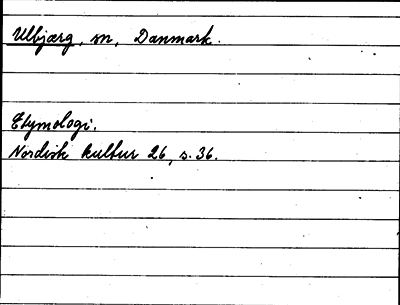 Ulbjærg, sn, Danmark.
Etymologi.
Nordisk kultur 26, s. 36.